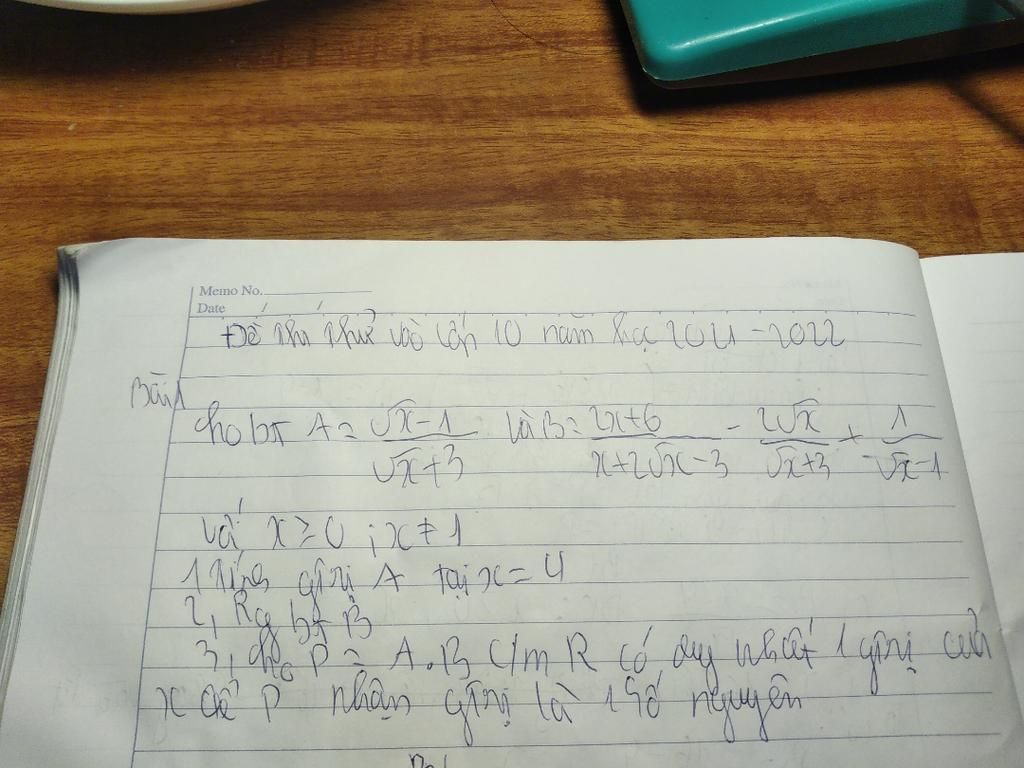 Memo No.
Date / /
Đề thi thử vào lớp 10 năm học 2021-2022
Bài 1
cho bt A = \frac{\sqrt{x}-1}{\sqrt{x}+3} và B = \frac{2x+6}{x+2\sqrt{x}-3} - \frac{2\sqrt{x}}{\sqrt{x}+3} + \frac{1}{\sqrt{x}-1}
với x ≥ 0 ; x ≠ 1
1 Tính gtrị A tại x = 4
2, Rg bt B
3, cho P = A.B C/m R có duy nhất 1 gtrị của
x để P nhận gtrị là 1 số nguyên